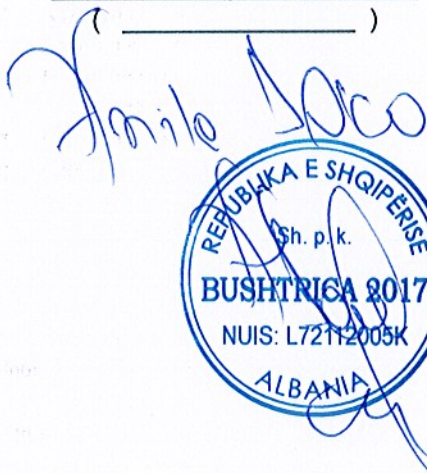 ( ____________________ )
REPUBLIKA E SHQIPËRISE
Sh. p. k.
BUSHTRICA 2017
NUIS: L72112005K
ALBANIA